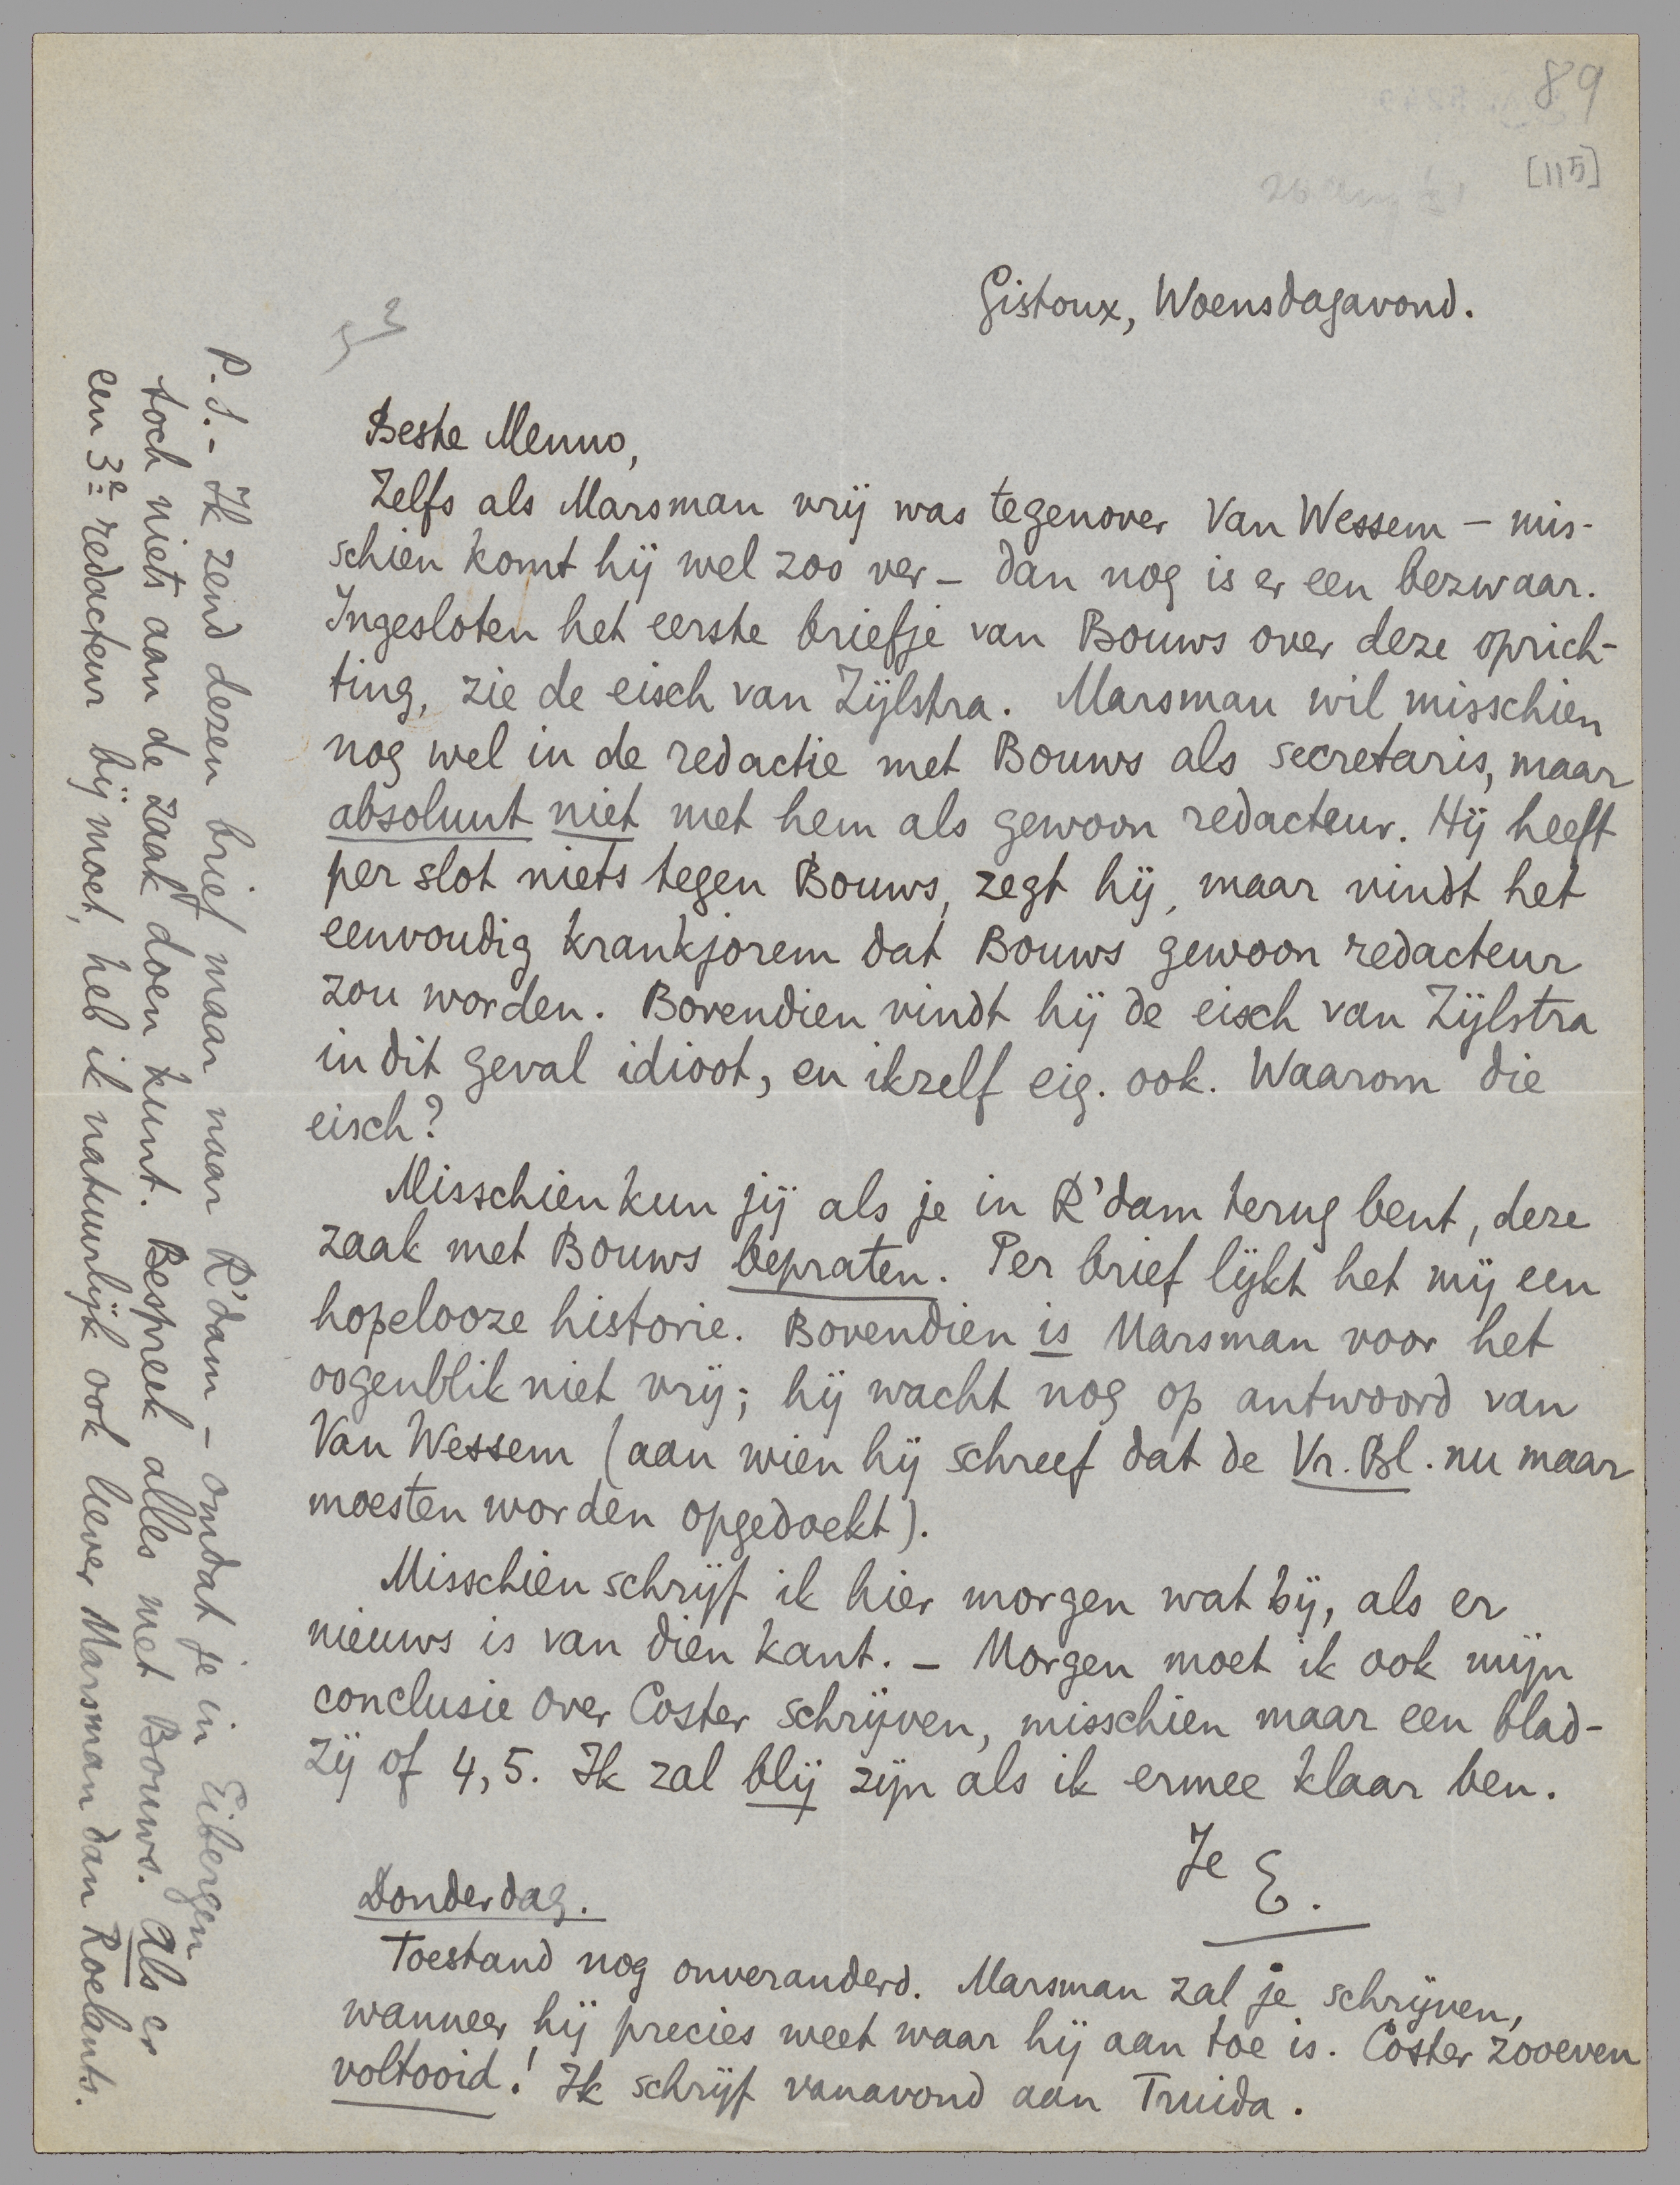 89
[115]
Gistoux, Woensdagavond.
Beste Menno,
Zelfs als Marsman vrij was tegenover Van Wessem – mis-
schien komt hij wel zoo ver – dan nog is er een bezwaar.
Ingesloten het eerste briefje van Bouws over deze oprich-
ting, zie de eisch van Zijlstra. Marsman wil misschien
nog wel in de redactie met Bouws als secretaris, maar
absoluut niet met hem als gewoon redacteur. Hij heeft
per slot niets tegen Bouws, zegt hij, maar vindt het
eenvoudig krankjorem dat Bouws gewoon redacteur
zou worden. Bovendien vindt hij de eisch van Zijlstra
in dit geval idioot, en ikzelf eig. ook. Waarom die
eisch?
Misschien kun jij als je in R'dam terug bent, deze
zaak met Bouws bepraten. Per brief lijkt het mij een
hopelooze historie. Bovendien is Marsman voor het
oogenblik niet vrij; hij wacht nog op antwoord van
Van Wessem (aan wien hij schreef dat de Vr. Bl. nu maar
moesten worden opgedoekt).
Misschien schrijf ik hier morgen wat bij, als er
nieuws is van dien kant. – Morgen moet ik ook mijn
conclusie over Coster schrijven, misschien maar een blad-
zij of 4, 5. Ik zal blij zijn als ik ermee klaar ben.
Je E.
Donderdag.
Toestand nog onveranderd. Marsman zal je schrijven,
wanneer hij precies weet waar hij aan toe is. Coster zooeven
voltooid! Ik schrijf vanavond aan Truida.
P.S. – Ik zend dezen brief maar naar R'dam – omdat je in Eibergen
toch niets aan de zaak doen kunt. Bespreek alles met Bouws. Als er
een 3e redacteur bij moet, heb ik natuurlijk ook liever Marsman dan Roelants.